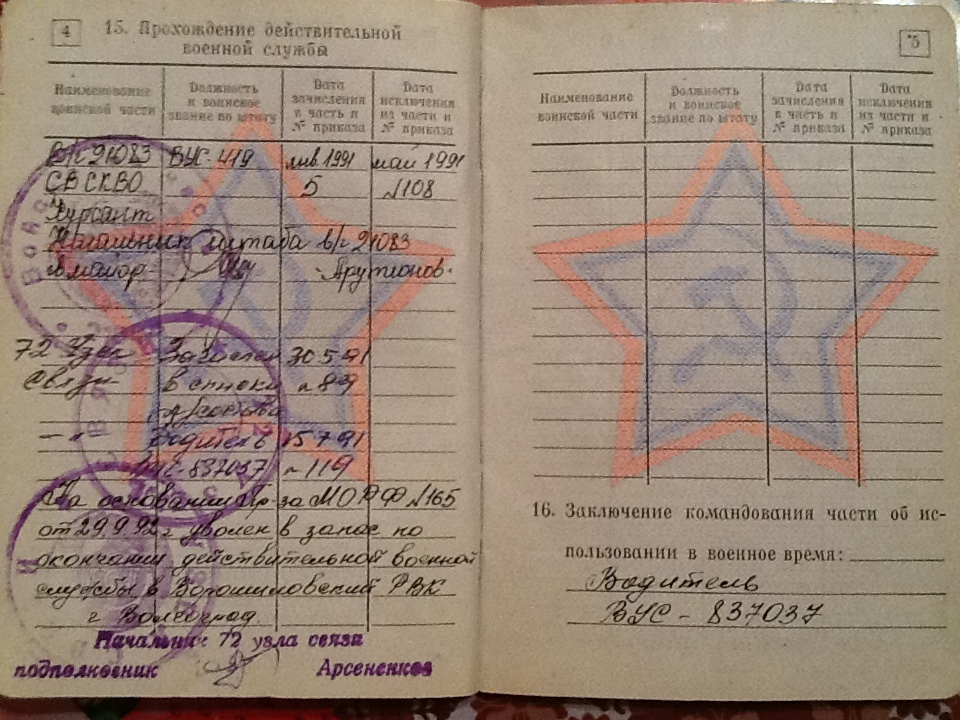 4
15. Прохождение действительной
военной службы
Наименование воинской части
Должность и воинское звание по штату
Дата зачисления в часть и № приказа
Дата исключения из части и № приказа
В/ч 21083 ВУС-419 янв 1991 май 1991
СВ СКВО 5 №108
Курсант
Начальник штаба в/ч 21083
майор Арутюнов
72 Узел Зачислен 30 5 91
Связи в списки №89
Водитель 15 7 91
ВУС-837037 №119
На основании Пр-за МО РФ №165
от 29.9.92г уволен в запас по
окончании действительной военной
службы в Ворошиловский РВК
г Волгоград
Начальник 72 узла связи
подполковник Арсененков
5
Наименование воинской части
Должность и воинское звание по штату
Дата зачисления в часть и № приказа
Дата исключения из части и № приказа
16. Заключение командования части об ис-
пользовании в военное время:
Водитель
ВУС - 837037